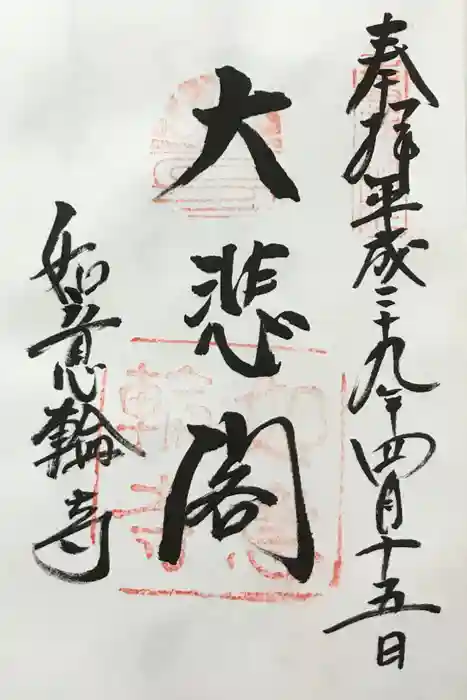 奉拝 平成二十九年四月十五日
大悲閣
如意輪寺